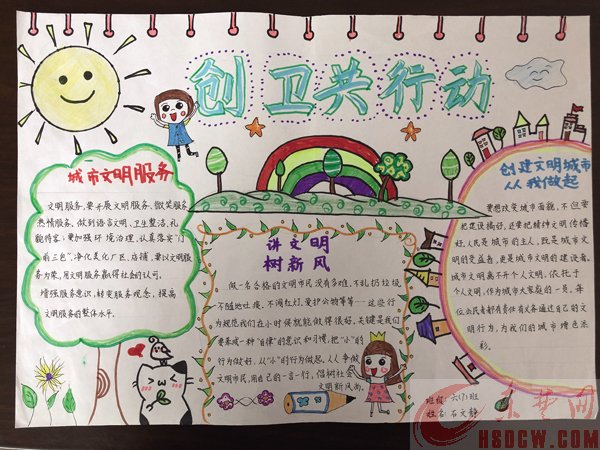 创卫共行动
城市文明服务
文明服务,要开展文明服务、微笑服务
热情服务,做到语言文明、卫生整洁、礼
貌待客;要加强环境治理,认真落实“门
前三包”净化美化厂区、店铺,要以文明服
务为荣,用文明服务赢得社会的认可。
增强服务意识,转变服务观念,提高
文明服务的整体水平。
讲文明
树新风
做一名合格的文明市民没有多难,不乱扔垃圾
不随地吐痰、不闯红灯、爱护公物等等……这些行
为规范我们在小时候就能做得很好,关键是我们
要养成一种“自律”的意识和习惯,把“小”的
行为做好,从“小”的行为做起,人人争做
文明市民,用自己的一言一行,倡树社会
文明新风尚。
创建文明城市
从我做起
要想改变城市面貌,不但要
把建设搞好,还要把精神文明传播
好。人民是城市的主人,既是城市文
明的受益者,更是城市文明的建设者,
城市文明离不开个人文明,依托于
个人文明,作为城市大家庭的一员,每
位公民者都有责任有义务通过自己的文
明行为,为我们的城市增色添
彩。
班级:六(7)班
姓名:石文静
东楚网
HSDCW.COM